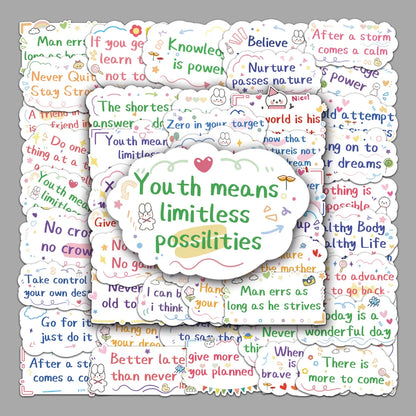 Man errs
long as he
If you ge
learn to
not to
Knowledge
is power
Believe
After a storm
comes a calm
Never Quit
Stay Strong
Nurture
passes nature
power
A friend in
friend in
The shortest
answer
Zero in your target
Nice!
world is his
old attempt
Do one
thing at a
Youth mean
limitless
how that
nature is not
ng on to
r dreams
Youth means
limitless
possilities
Youth mean
limitless
thing is
possible
No cro
no crow
Give
No
No gain
ealthy Body
althy Life
Take control
your own des
Never
old to
I can b
i think
Hang
your
ture
the mother
Man errs as
long as he strives
to advance
to go back
Go for it
just do it
Hang on
your dre
to say the
Never
oday is a
wonderful day
After a s
comes a co
Better late
than never
give more
you planned
When
is
brave
There is
more to come